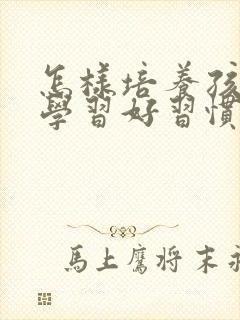 怎樣培養孩
學習好習慣
馬上鷹将末